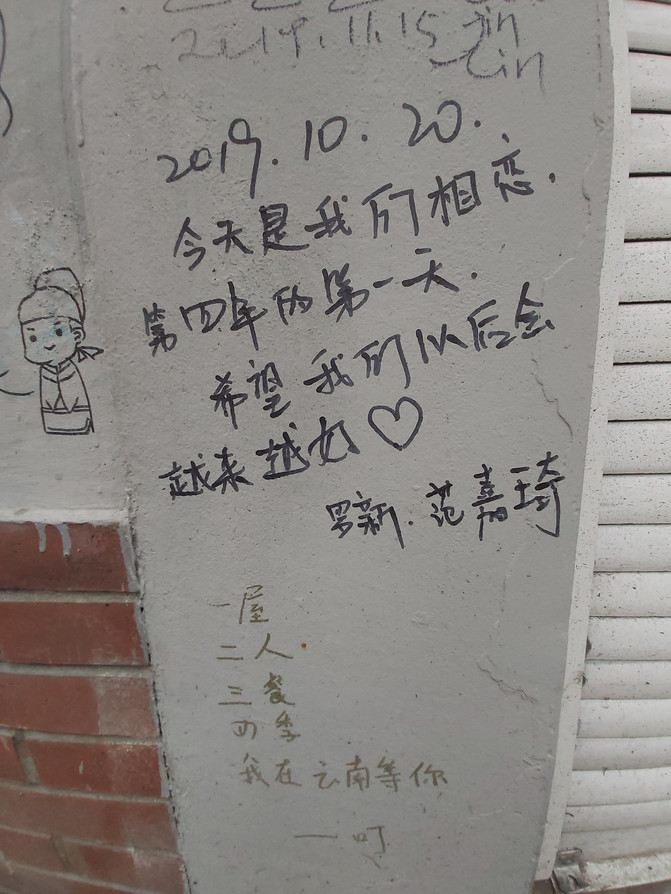 2019.11.15
2019.10.20.
今天是我们相恋.
第四年的第一天.
希望我们以后会
越来越好♡
罗新.范嘉琦
一屋
二人
三餐
四季
我在云南等你
一叮